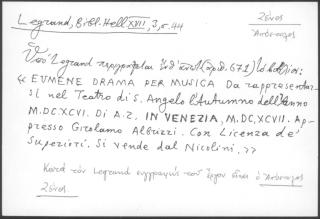 Legrand, Bibl. Hell XVII, 3, σ. 44
Ζένος
Ἀπόστολος
Ὑπό Legrand περιγράφεται ὑπ' (ἀριθ. 671) τό βιβλίον:
« EVMENE DRAMA PER MUSICA Da rappresentar-
si nel Teatro di S. Angelo l'Autumno dell'Anno
M.DC.XCVI. Di A.Z. IN VENEZIA, M.DC.XCVII. Ap-
presso Girolamo Albrizzi. Con Licenza de'
Superiori. Si vende dal Nicolini. »
Κατά τόν Legrand συγγραφεύς τοῦ ἔργου εἶναι ὁ Ἀπόστολος
Ζένος.